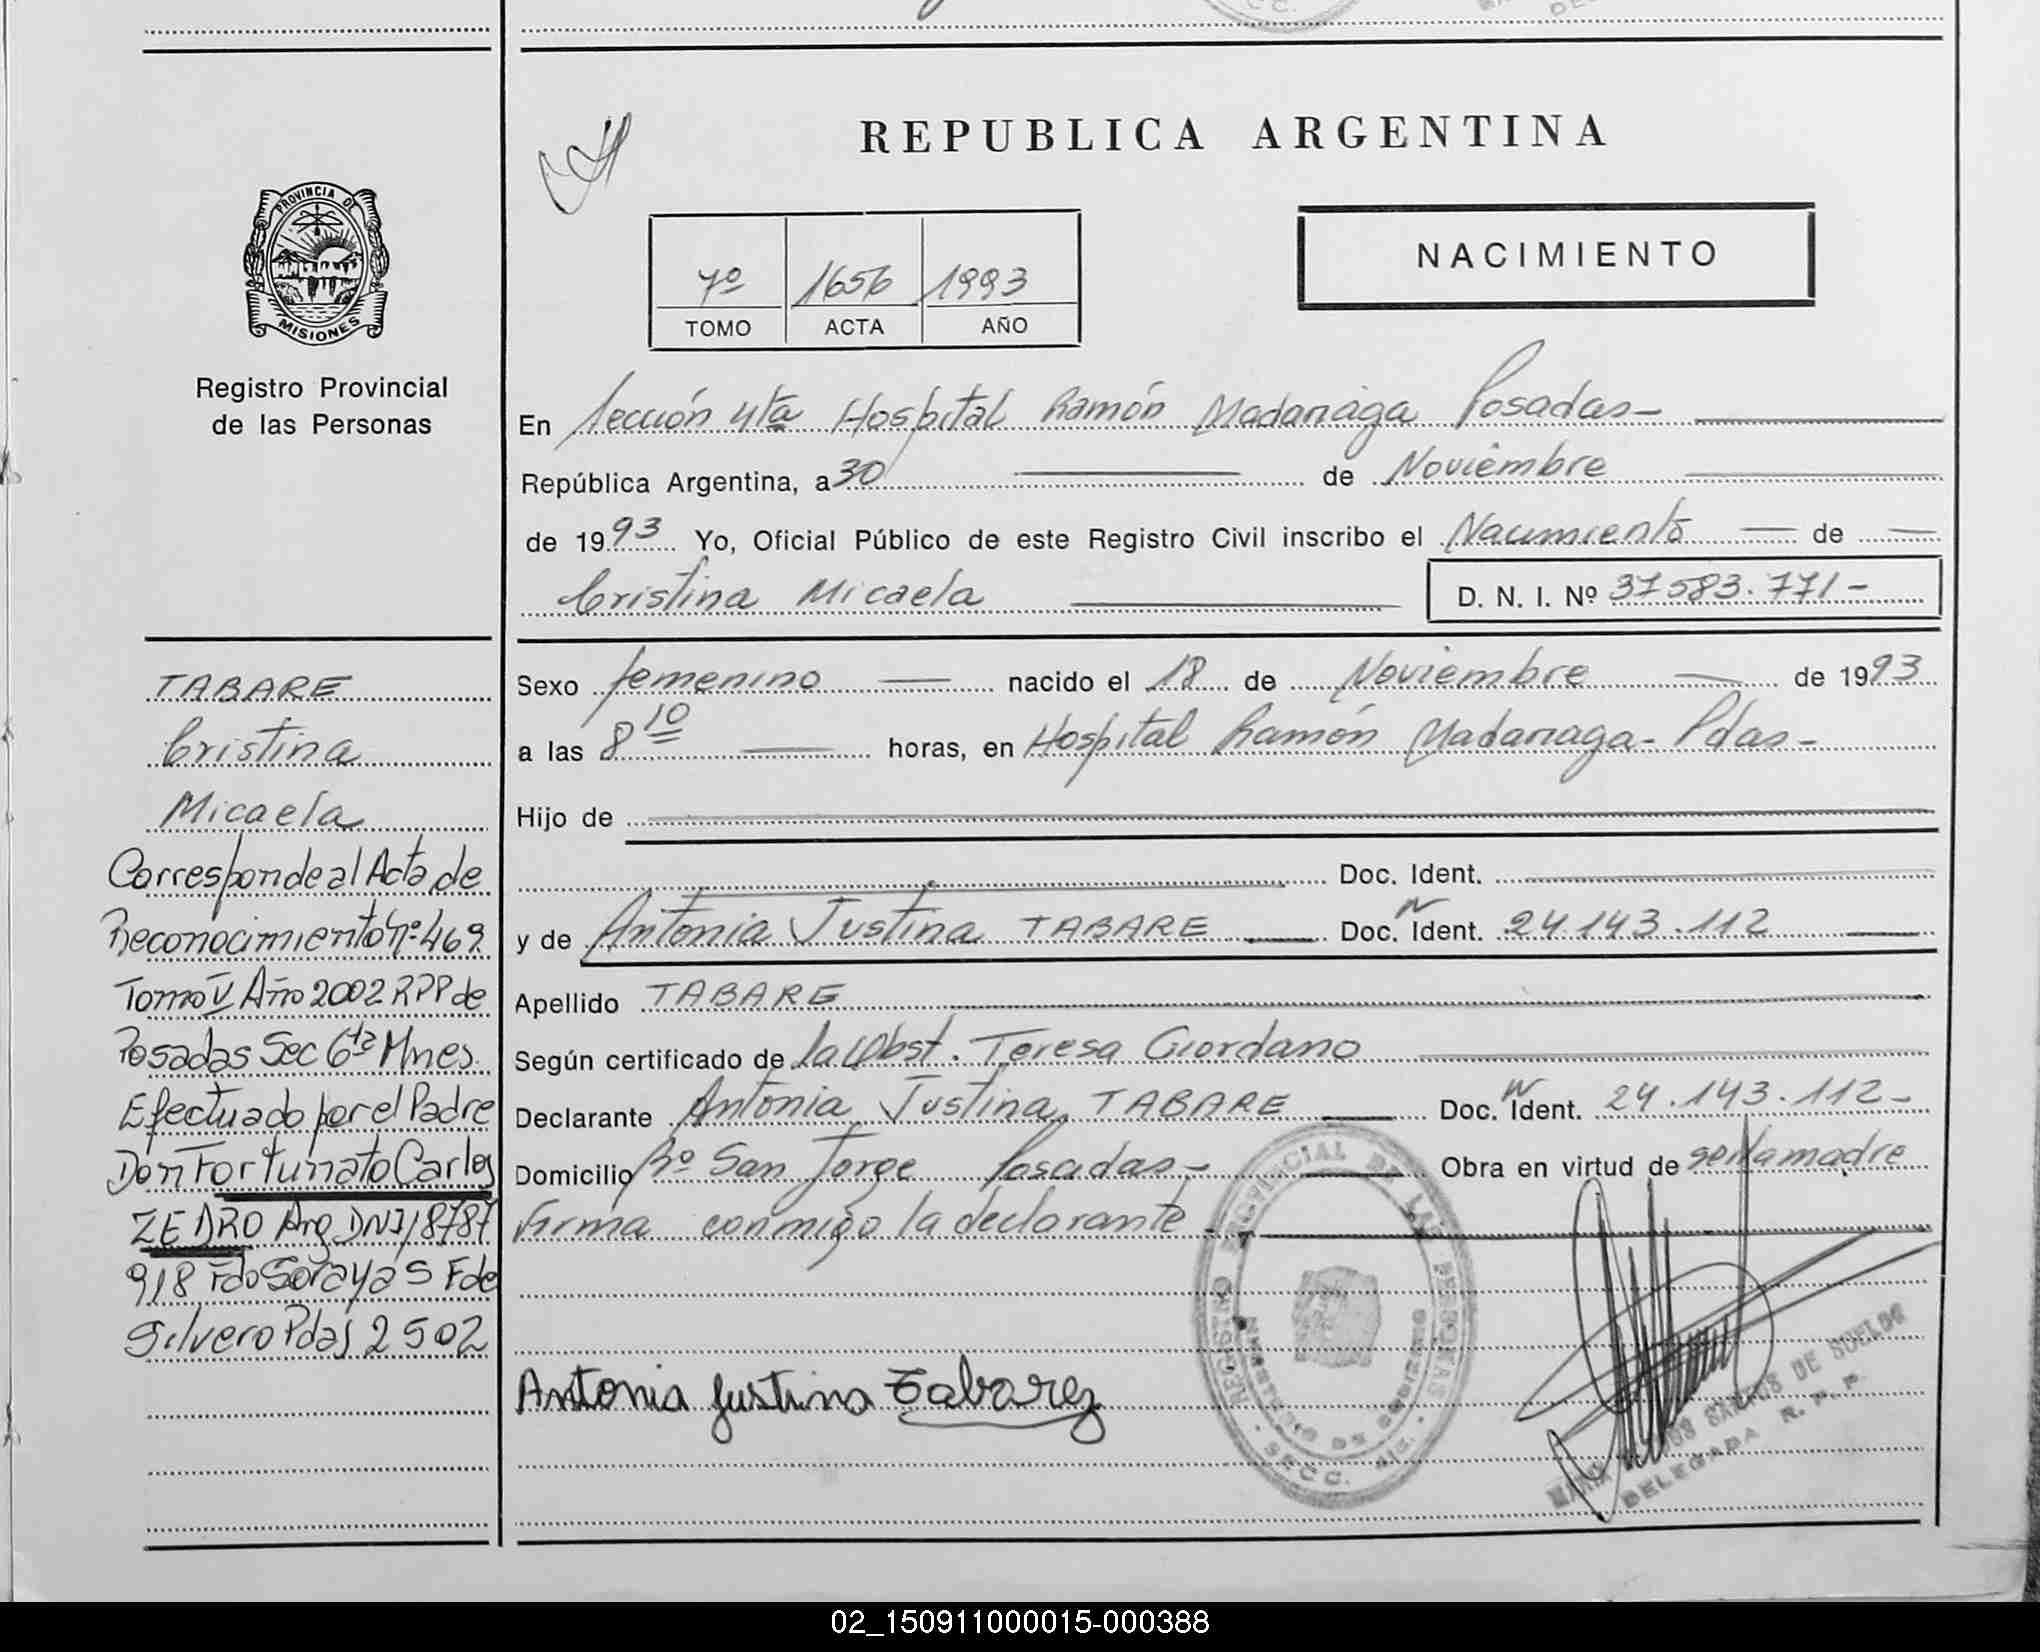 REPUBLICA ARGENTINA
NACIMIENTO
7º 1656 1993
TOMO ACTA AÑO
PROVINCIA DE
MISIONES
Registro Provincial
de las Personas
En Sección 4ta Hospital Ramón Madariaga Posadas-
República Argentina, a 30 de Noviembre
de 1993 Yo, Oficial Público de este Registro Civil inscribo el Nacimiento de
Cristina Micaela D. N. I. Nº 37583.771-
TABARE
Cristina
Micaela
Corresponde al Acta de
Reconocimiento nº 469
Tomo V Año 2002 RPP de
Posadas Sec 6ta Mnes.
Efectuado por el Padre
Don Fortunato Carlos
ZEDRO Arg DNI 18787
918 Fdo Soraya S F de
Silvero Pdas 2502
Sexo femenino nacido el 18 de Noviembre de 1993
a las 8 10 horas, en Hospital Ramón Madariaga- Pdas-
Hijo de
Doc. Ident.
y de Antonia Justina TABARE Doc. Ident. 24.143.112
Apellido TABARE
Según certificado de la Obst. Teresa Giordano
Declarante Antonia Justina TABARE Doc. Ident. 24.143.112-
Domicilio Bº San Jorge Posadas- Obra en virtud de ser la madre
Firma conmigo la declarante
Antonia Justina Tabarez
REGISTRO PROVINCIAL DE LAS PERSONAS
SECC.
SANTOS DE
DELEGADA R. P. P.
02_150911000015-000388